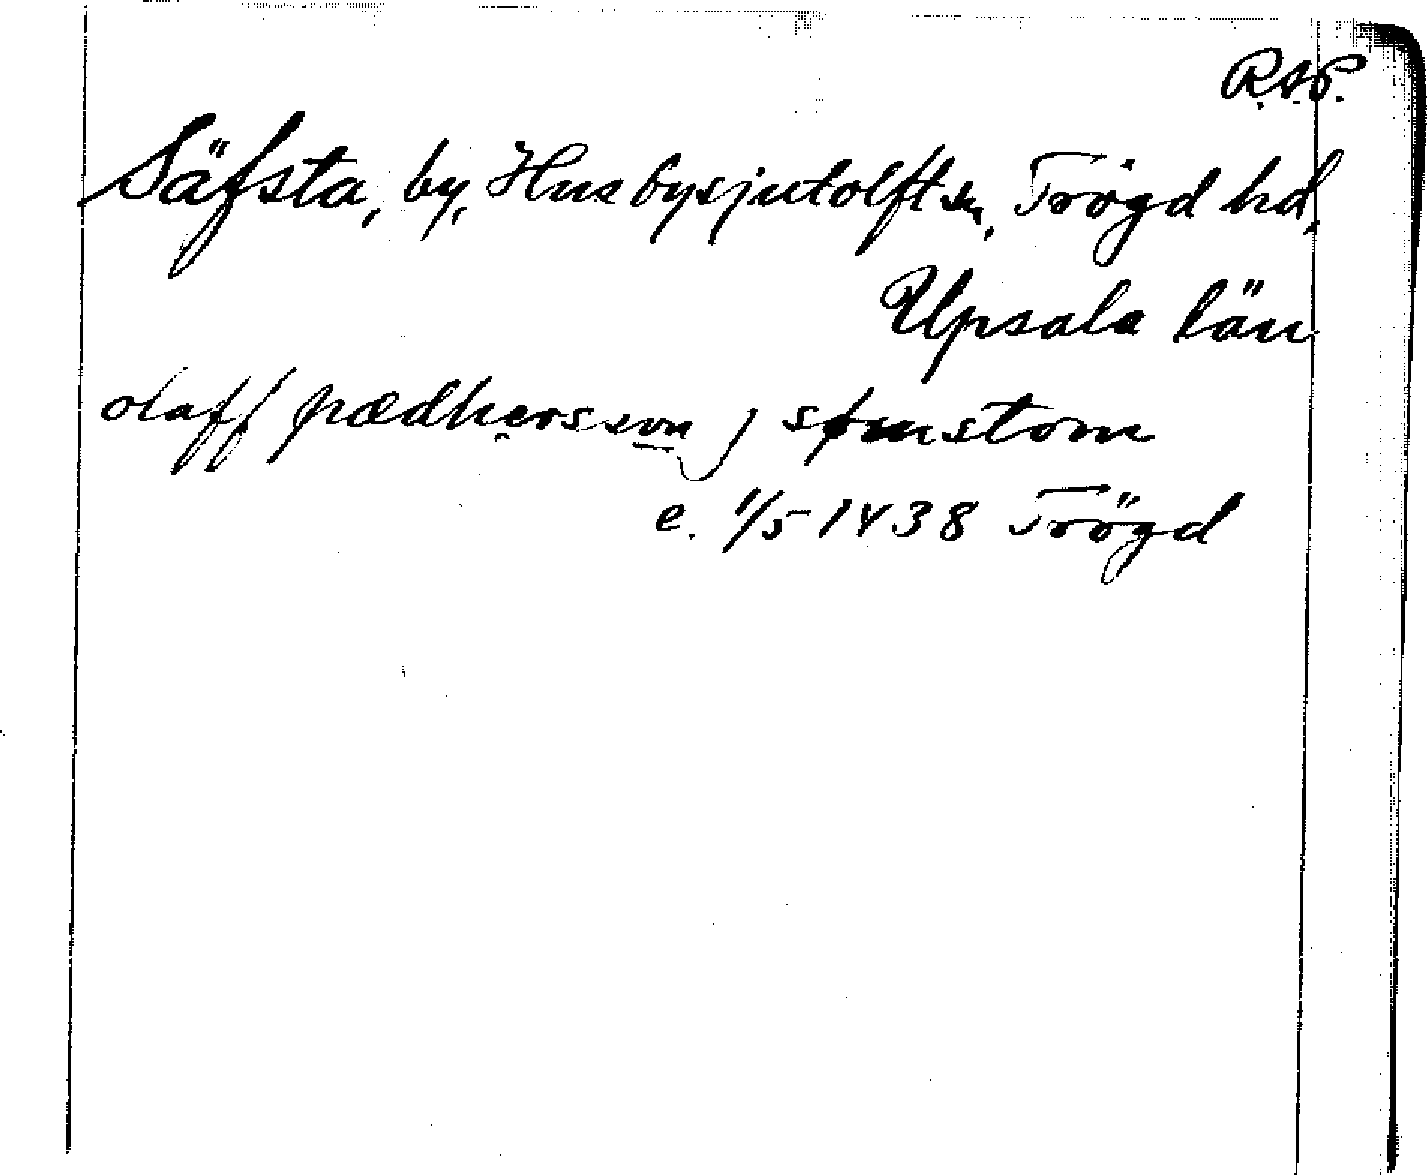 R.A.P.
Säfsta, by, Husbysjutolft sn, Trögd hd,
Upsala län
olaff pædhersson j sømstom
e. 1/5 1438 Trögd